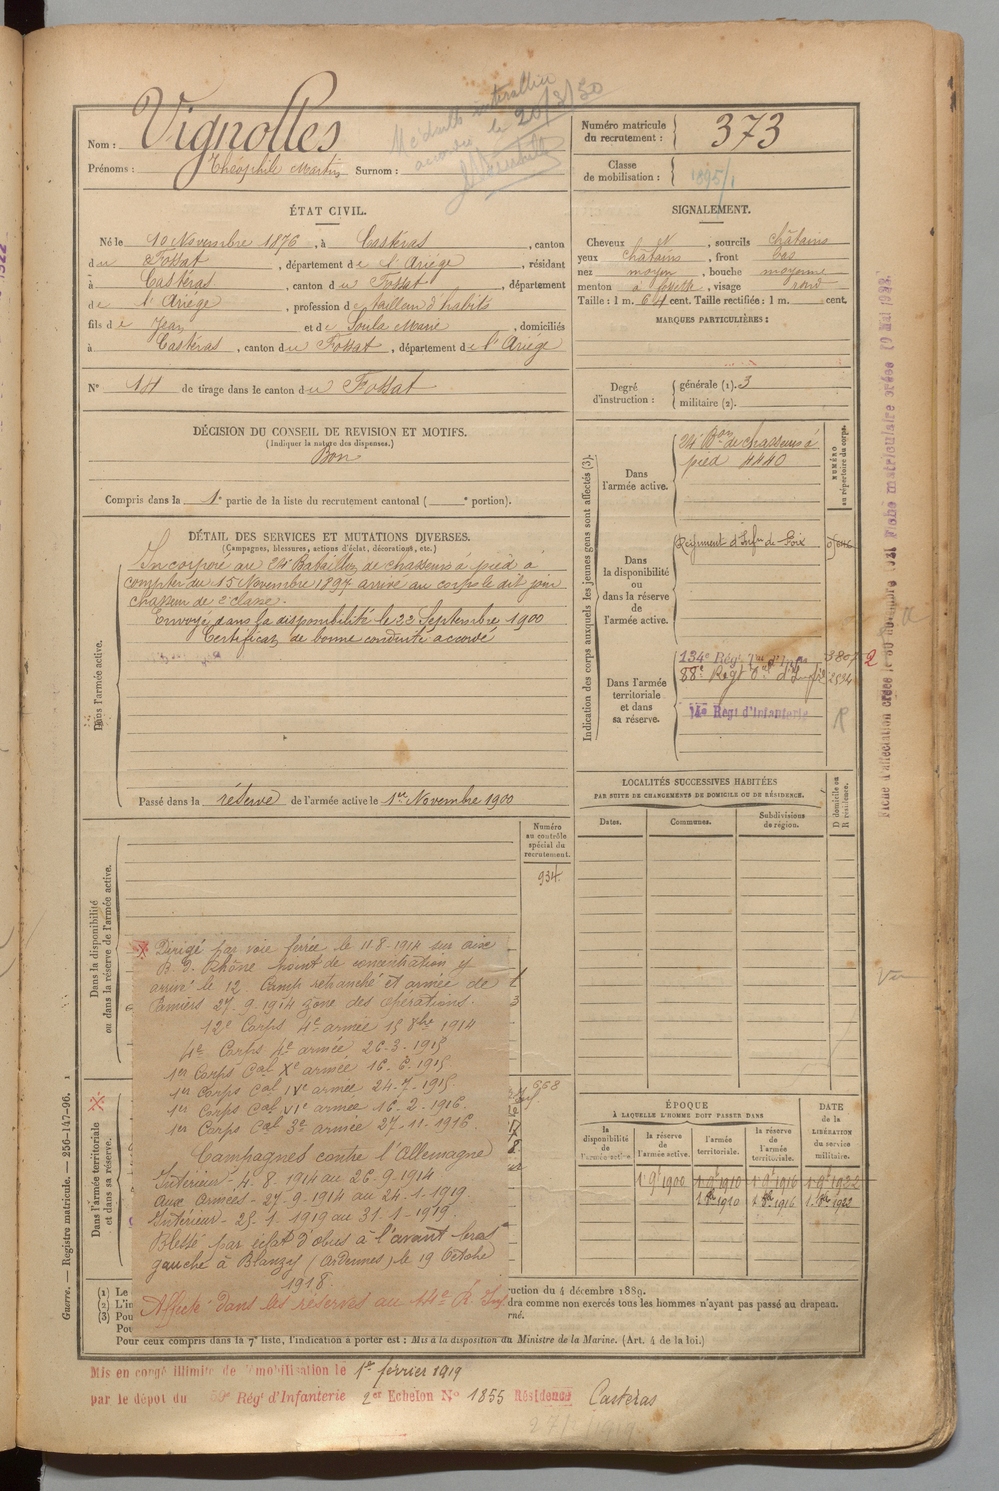 Vignolles
Nom :
Prénoms : Théophile Martin Surnom :
Médaille interalliée
accordée le 20/3/30
Numéro matricule
du recrutement : 373
Classe
de mobilisation : 1895/1
ÉTAT CIVIL.
Né le 10 Novembre 1876, à Castéras, canton
du Fossat, département de l'Ariége, résidant
à Castéras, canton du Fossat, département
de l'Ariége, profession de tailleur d'habits
fils de Jean et de Soula Marie, domiciliés
à Castéras, canton du Fossat, département de l'Ariége
N° 14 de tirage dans le canton du Fossat
DÉCISION DU CONSEIL DE REVISION ET MOTIFS.
(Indiquer la nature des dispenses.)
Bon
Compris dans la 1e partie de la liste du recrutement cantonal ( e portion).
DÉTAIL DES SERVICES ET MUTATIONS DIVERSES.
(Campagnes, blessures, actions d'éclat, décorations, etc.)
Dans l'armée active.
Incorporé au 24e Bataillon de chasseurs à pied à
compter du 15 Novembre 1897 arrivé au corps le dit jour
chasseur de 2e classe.
Envoyé dans la disponibilité le 22 Septembre 1900
Certificat de bonne conduite accordé
Passé dans la réserve de l'armée active le 1er Novembre 1900
Numéro
au contrôle
spécial du
recrutement.
934
Dans la disponibilité
ou dans la réserve de l'armée active.
Dirigé par voie ferrée le 11-8-1914 sur Aix
B. D. Rhône point de concentration y
arrivé le 12. Camp retranché et armée de
27.9.1914 zone des opérations.
12e Corps 4e armée 15 8bre 1914
4e Corps 4e armée 26-3-1915
1er Corps Cal Xe armée 16-6-1915
1er Corps Cal IVe armée 24-7-1915
1er Corps Cal VIe armée 16-2-1916.
1er Corps Cal 3e armée 27-11-1916.
Campagnes contre l'Allemagne
Intérieur - 4-8-1914 au 26-9-1914
Aux Armées - 27-9-1914 au 24-1-1919.
Intérieur - 25-1-1919 au 31-1-1919.
Blessé par éclat d'obus à l'avant bras
gauche à Blanzy (Ardennes) le 19 Octobre
1918.
Affecté dans les réserves au 14e R. Inf.
Dans l'armée territoriale
et dans sa réserve.
558
(1) Le
ruction du 4 décembre 1889.
(2) L'in
dra comme non exercés tous les hommes n'ayant pas passé au drapeau.
(3) Pou
rné.
Pou
Pour ceux compris dans la 7e liste, l'indication à porter est : Mis à la disposition du Ministre de la Marine. (Art. 4 de la loi.)
Mis en congé illimité de démobilisation le 1er février 1919
par le dépôt du 59e Régt d'Infanterie 2er Echelon N° 1855 Résidence Casteras
Guerre. — Registre matricule. — 256-147-96. 1
SIGNALEMENT.
Cheveux N, sourcils châtains
yeux châtains, front bas
nez moyen, bouche moyenne
menton à fossette, visage rond
Taille : 1 m. 64 cent. Taille rectifiée : 1 m. cent.
MARQUES PARTICULIÈRES :
Degré
d'instruction :
générale (1). 3
militaire (2).
Indication des corps auxquels les jeunes gens sont affectés (3).
NUMÉRO
au répertoire du corps.
Dans
l'armée active.
24e Bon de chasseurs à
pied 4440
Dans
la disponibilité
ou
dans la réserve
de
l'armée active.
Régiment d'Infrie de Foix
Dans l'armée
territoriale
et dans
sa réserve.
134e Régt Tal d'Infie 3807
88e Régt Tal d'Infie 2534
14e Régt d'Infanterie
R
LOCALITÉS SUCCESSIVES HABITÉES
PAR SUITE DE CHANGEMENTS DE DOMICILE OU DE RÉSIDENCE.
D domicile ou
R résidence.
Dates.
Communes.
Subdivisions
de région.
ÉPOQUE
À LAQUELLE L'HOMME DOIT PASSER DANS
DATE
de la
LIBÉRATION
du service
militaire.
la
disponibilité
de
l'armée active.
la réserve
de
l'armée active.
l'armée
territoriale.
la réserve
de
l'armée
territoriale.
1 9e 1900
1 9e 1910
1 9e 1916
1 9e 1922
1 8bre 1910
1 8bre 1916
1 8bre 1922
Fiche d'affectation créée le 30 novembre 1921 Fiche matriculaire créée 10 Mai 1922.
Vu